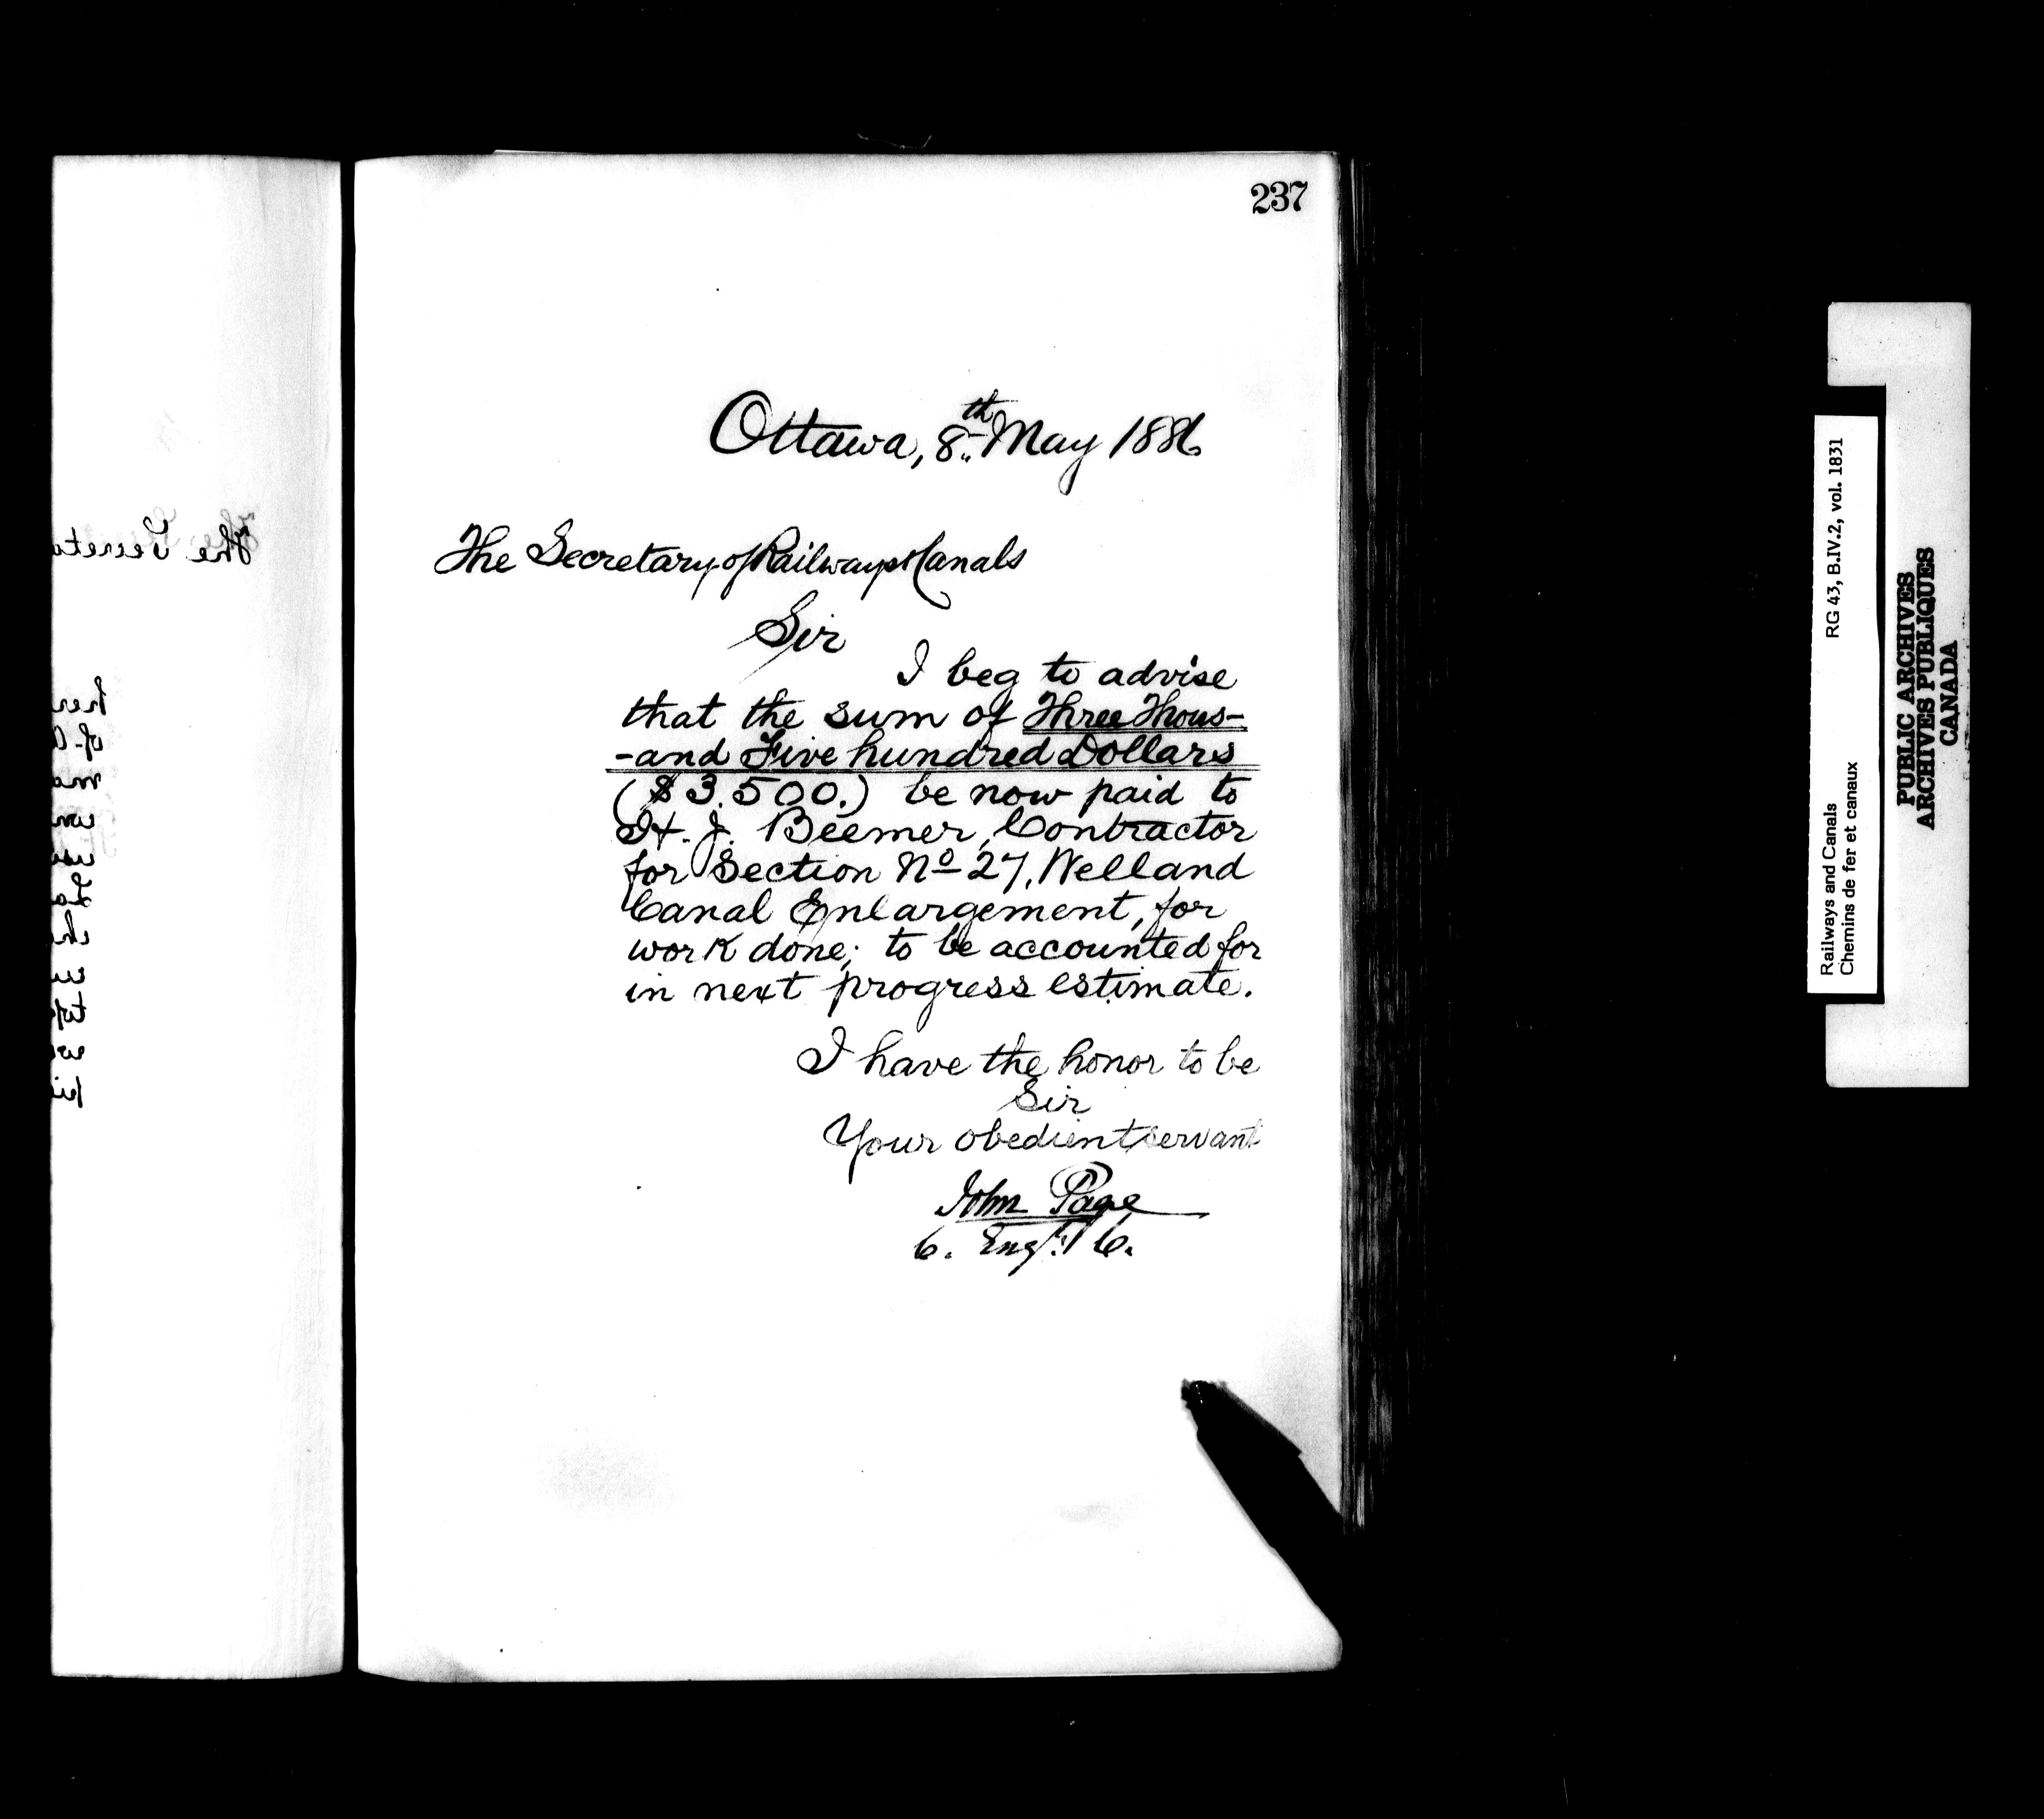 237
Ottawa, 8th May 1886
The Secretary of Railways & Canals
Sir
I beg to advise
that the sum of Three Thous-
-and Five hundred Dollars
($3.500.) be now paid to
H. J. Beemer, Contractor
for Section No 27, Welland
Canal Enlargement, for
work done; to be accounted for
in next progress estimate.
I have the honor to be
Sir
Your obedient servant
John Page
C. Engr. C.
The Secreta
Railways and Canals RG 43, B.IV.2, vol. 1831
Chemins de fer et canaux
PUBLIC ARCHIVES
ARCHIVES PUBLIQUES
CANADA